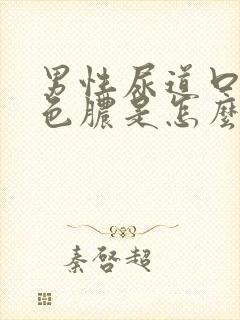 男性尿道口
色膿是怎麼
秦啓超